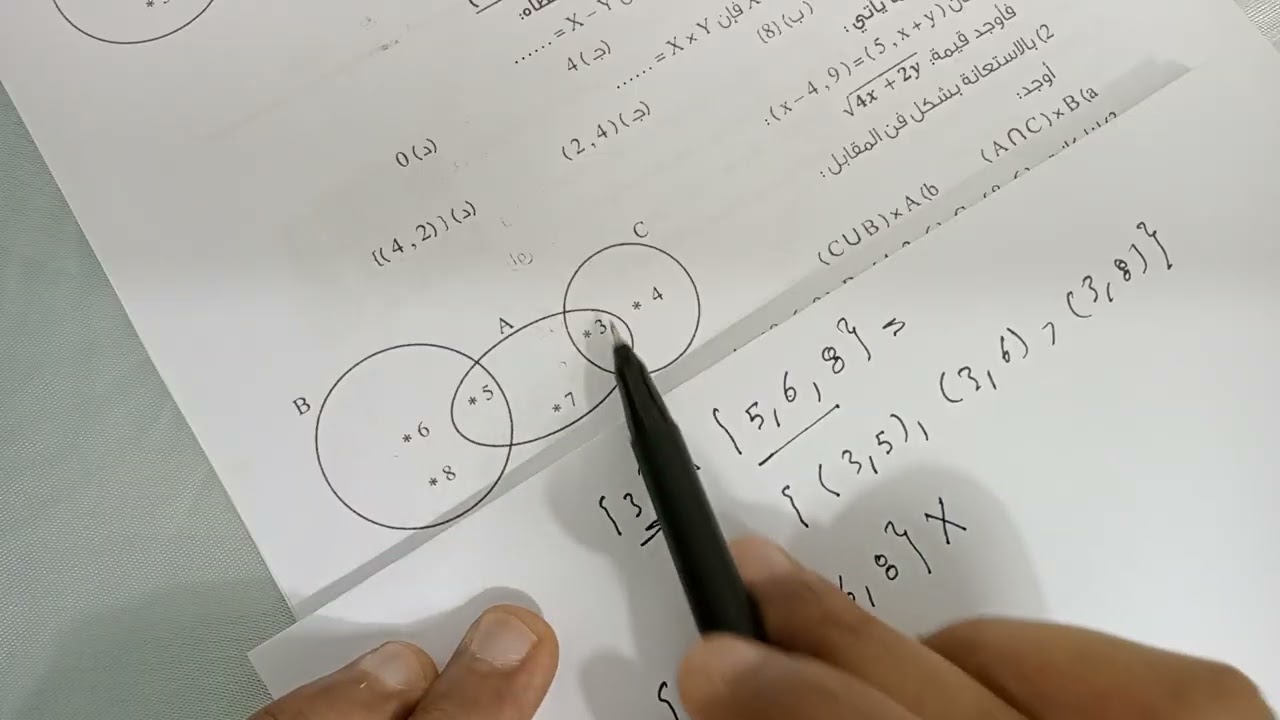 X − Y = ......
4 (د)
X × Y فإن = ......
(8) (ب)
يأتي:
(x − 4 , 9) = (5 , x + y) :
فأوجد قيمة: √4x + 2y
0 (د)
(2 , 4) (ج)
2) بالاستعانة بشكل فن المقابل :
أوجد:
{(4 , 2)} (د)
(C ∪ B) × A (b
(A ∩ C) × B (a
C
* 4
A
* 3
B
* 5
* 7
* 6
* 8
{5,6,8} =
{3
{(3,5), (3,6), (3,8)}
6,8} X
{